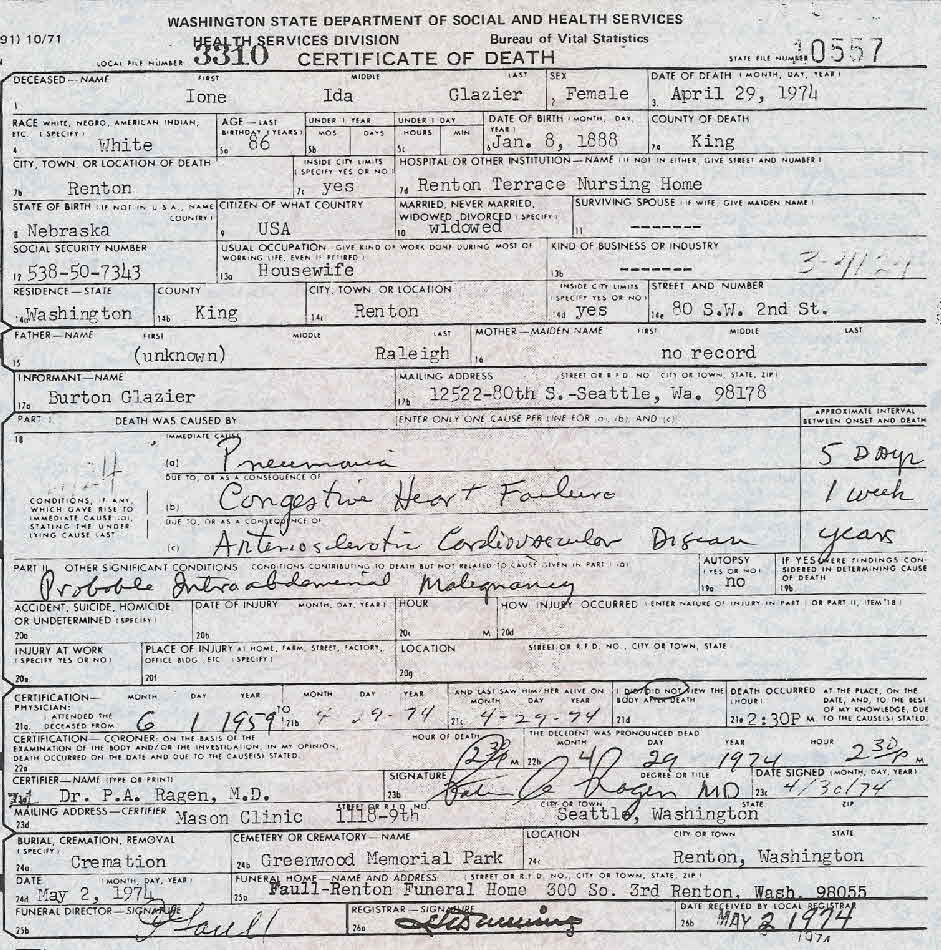 WASHINGTON STATE DEPARTMENT OF SOCIAL AND HEALTH SERVICES
91) 10/71 HEALTH SERVICES DIVISION Bureau of Vital Statistics
LOCAL FILE NUMBER 3310 CERTIFICATE OF DEATH STATE FILE NUMBER 10557
DECEASED—NAME FIRST MIDDLE LAST SEX DATE OF DEATH (MONTH, DAY, YEAR)
1 Ione Ida Glazier 2 Female 3. April 29, 1974
RACE WHITE, NEGRO, AMERICAN INDIAN, AGE—LAST UNDER 1 YEAR UNDER 1 DAY DATE OF BIRTH (MONTH, DAY, COUNTY OF DEATH
ETC. (SPECIFY) BIRTHDAY (YEARS) MOS DAYS HOURS MIN YEAR)
4 White 5a 86 5b 5c 6 Jan. 8, 1888 7a King
CITY, TOWN, OR LOCATION OF DEATH INSIDE CITY LIMITS HOSPITAL OR OTHER INSTITUTION—NAME (IF NOT IN EITHER, GIVE STREET AND NUMBER)
(SPECIFY YES OR NO)
7b Renton 7c yes 7d Renton Terrace Nursing Home
STATE OF BIRTH (IF NOT IN U.S.A., NAME CITIZEN OF WHAT COUNTRY MARRIED, NEVER MARRIED, SURVIVING SPOUSE (IF WIFE, GIVE MAIDEN NAME)
COUNTRY) WIDOWED, DIVORCED (SPECIFY)
8 Nebraska 9 USA 10 widowed 11 -------
SOCIAL SECURITY NUMBER USUAL OCCUPATION (GIVE KIND OF WORK DONE DURING MOST OF KIND OF BUSINESS OR INDUSTRY
WORKING LIFE, EVEN IF RETIRED)
12 538-50-7343 13a Housewife 13b -------
RESIDENCE—STATE COUNTY CITY, TOWN, OR LOCATION INSIDE CITY LIMITS STREET AND NUMBER
(SPECIFY YES OR NO)
14a Washington 14b King 14c Renton 14d yes 14e 80 S.W. 2nd St.
FATHER—NAME FIRST MIDDLE LAST MOTHER—MAIDEN NAME FIRST MIDDLE LAST
15 (unknown) Raleigh 16 no record
INFORMANT—NAME MAILING ADDRESS (STREET OR R.F.D. NO., CITY OR TOWN, STATE, ZIP)
17a Burton Glazier 17b 12522-80th S.-Seattle, Wa. 98178
PART I. DEATH WAS CAUSED BY [ENTER ONLY ONE CAUSE PER LINE FOR (a), (b), AND (c)] APPROXIMATE INTERVAL
BETWEEN ONSET AND DEATH
18 IMMEDIATE CAUSE
(a) Pneumonia 5 Days
DUE TO, OR AS A CONSEQUENCE OF
CONDITIONS, IF ANY, (b) Congestive Heart Failure 1 week
WHICH GAVE RISE TO
IMMEDIATE CAUSE (a), DUE TO, OR AS A CONSEQUENCE OF
STATING THE UNDER
LYING CAUSE LAST (c) Arteriosclerotic Cardiovascular Disease years
PART II. OTHER SIGNIFICANT CONDITIONS CONDITIONS CONTRIBUTING TO DEATH BUT NOT RELATED TO CAUSE GIVEN IN PART I (a) AUTOPSY IF YES WERE FINDINGS CON-
(YES OR NO) SIDERED IN DETERMINING CAUSE
Probable Intraabdominal Malignancy 19a no 19b OF DEATH
ACCIDENT, SUICIDE, HOMICIDE DATE OF INJURY (MONTH, DAY, YEAR) HOUR HOW INJURY OCCURRED (ENTER NATURE OF INJURY IN PART I OR PART II, ITEM 18)
OR UNDETERMINED (SPECIFY)
20a 20b 20c M. 20d
INJURY AT WORK PLACE OF INJURY AT HOME, FARM, STREET, FACTORY, LOCATION STREET OR R.F.D. NO., CITY OR TOWN, STATE
(SPECIFY YES OR NO) OFFICE BLDG., ETC. (SPECIFY)
20e 20f 20g
CERTIFICATION— MONTH DAY YEAR MONTH DAY YEAR AND LAST SAW HIM/HER ALIVE ON I DID/DID NOT VIEW THE DEATH OCCURRED AT THE PLACE, ON THE
PHYSICIAN: MONTH DAY YEAR BODY AFTER DEATH (HOUR) DATE, AND, TO THE BEST
I ATTENDED THE TO OF MY KNOWLEDGE, DUE
21a. DECEASED FROM 6 1 1959 21b 4 -29-74 21c 4-29-74 21d 21e 2:30P M TO THE CAUSE(S) STATED.
CERTIFICATION—CORONER: ON THE BASIS OF THE HOUR OF DEATH THE DECEDENT WAS PRONOUNCED DEAD
EXAMINATION OF THE BODY AND/OR THE INVESTIGATION, IN MY OPINION, MONTH DAY YEAR HOUR
DEATH OCCURRED ON THE DATE AND DUE TO THE CAUSE(S) STATED.
22a 2 30 P M 22b 4 29 1974 2 30 P M
CERTIFIER—NAME (TYPE OR PRINT) SIGNATURE DEGREE OR TITLE DATE SIGNED (MONTH, DAY, YEAR)
Dr. P.A. Ragen, M.D. 23b Ragen MD 23c 4/30/74
MAILING ADDRESS—CERTIFIER STREET OR R.F.D. NO. CITY OR TOWN STATE ZIP
23d Mason Clinic 1118-9th Seattle, Washington
BURIAL, CREMATION, REMOVAL CEMETERY OR CREMATORY—NAME LOCATION CITY OR TOWN STATE
(SPECIFY)
24a Cremation 24b Greenwood Memorial Park 24c Renton, Washington
DATE (MONTH, DAY, YEAR) FUNERAL HOME—NAME AND ADDRESS (STREET OR R.F.D. NO., CITY OR TOWN, STATE, ZIP)
24d May 2, 1974 25a Faull-Renton Funeral Home 300 So. 3rd Renton, Wash. 98055
FUNERAL DIRECTOR—SIGNATURE REGISTRAR—SIGNATURE DATE RECEIVED BY LOCAL REGISTRAR
25b Faull 26a 26b MAY 2 1974
1974